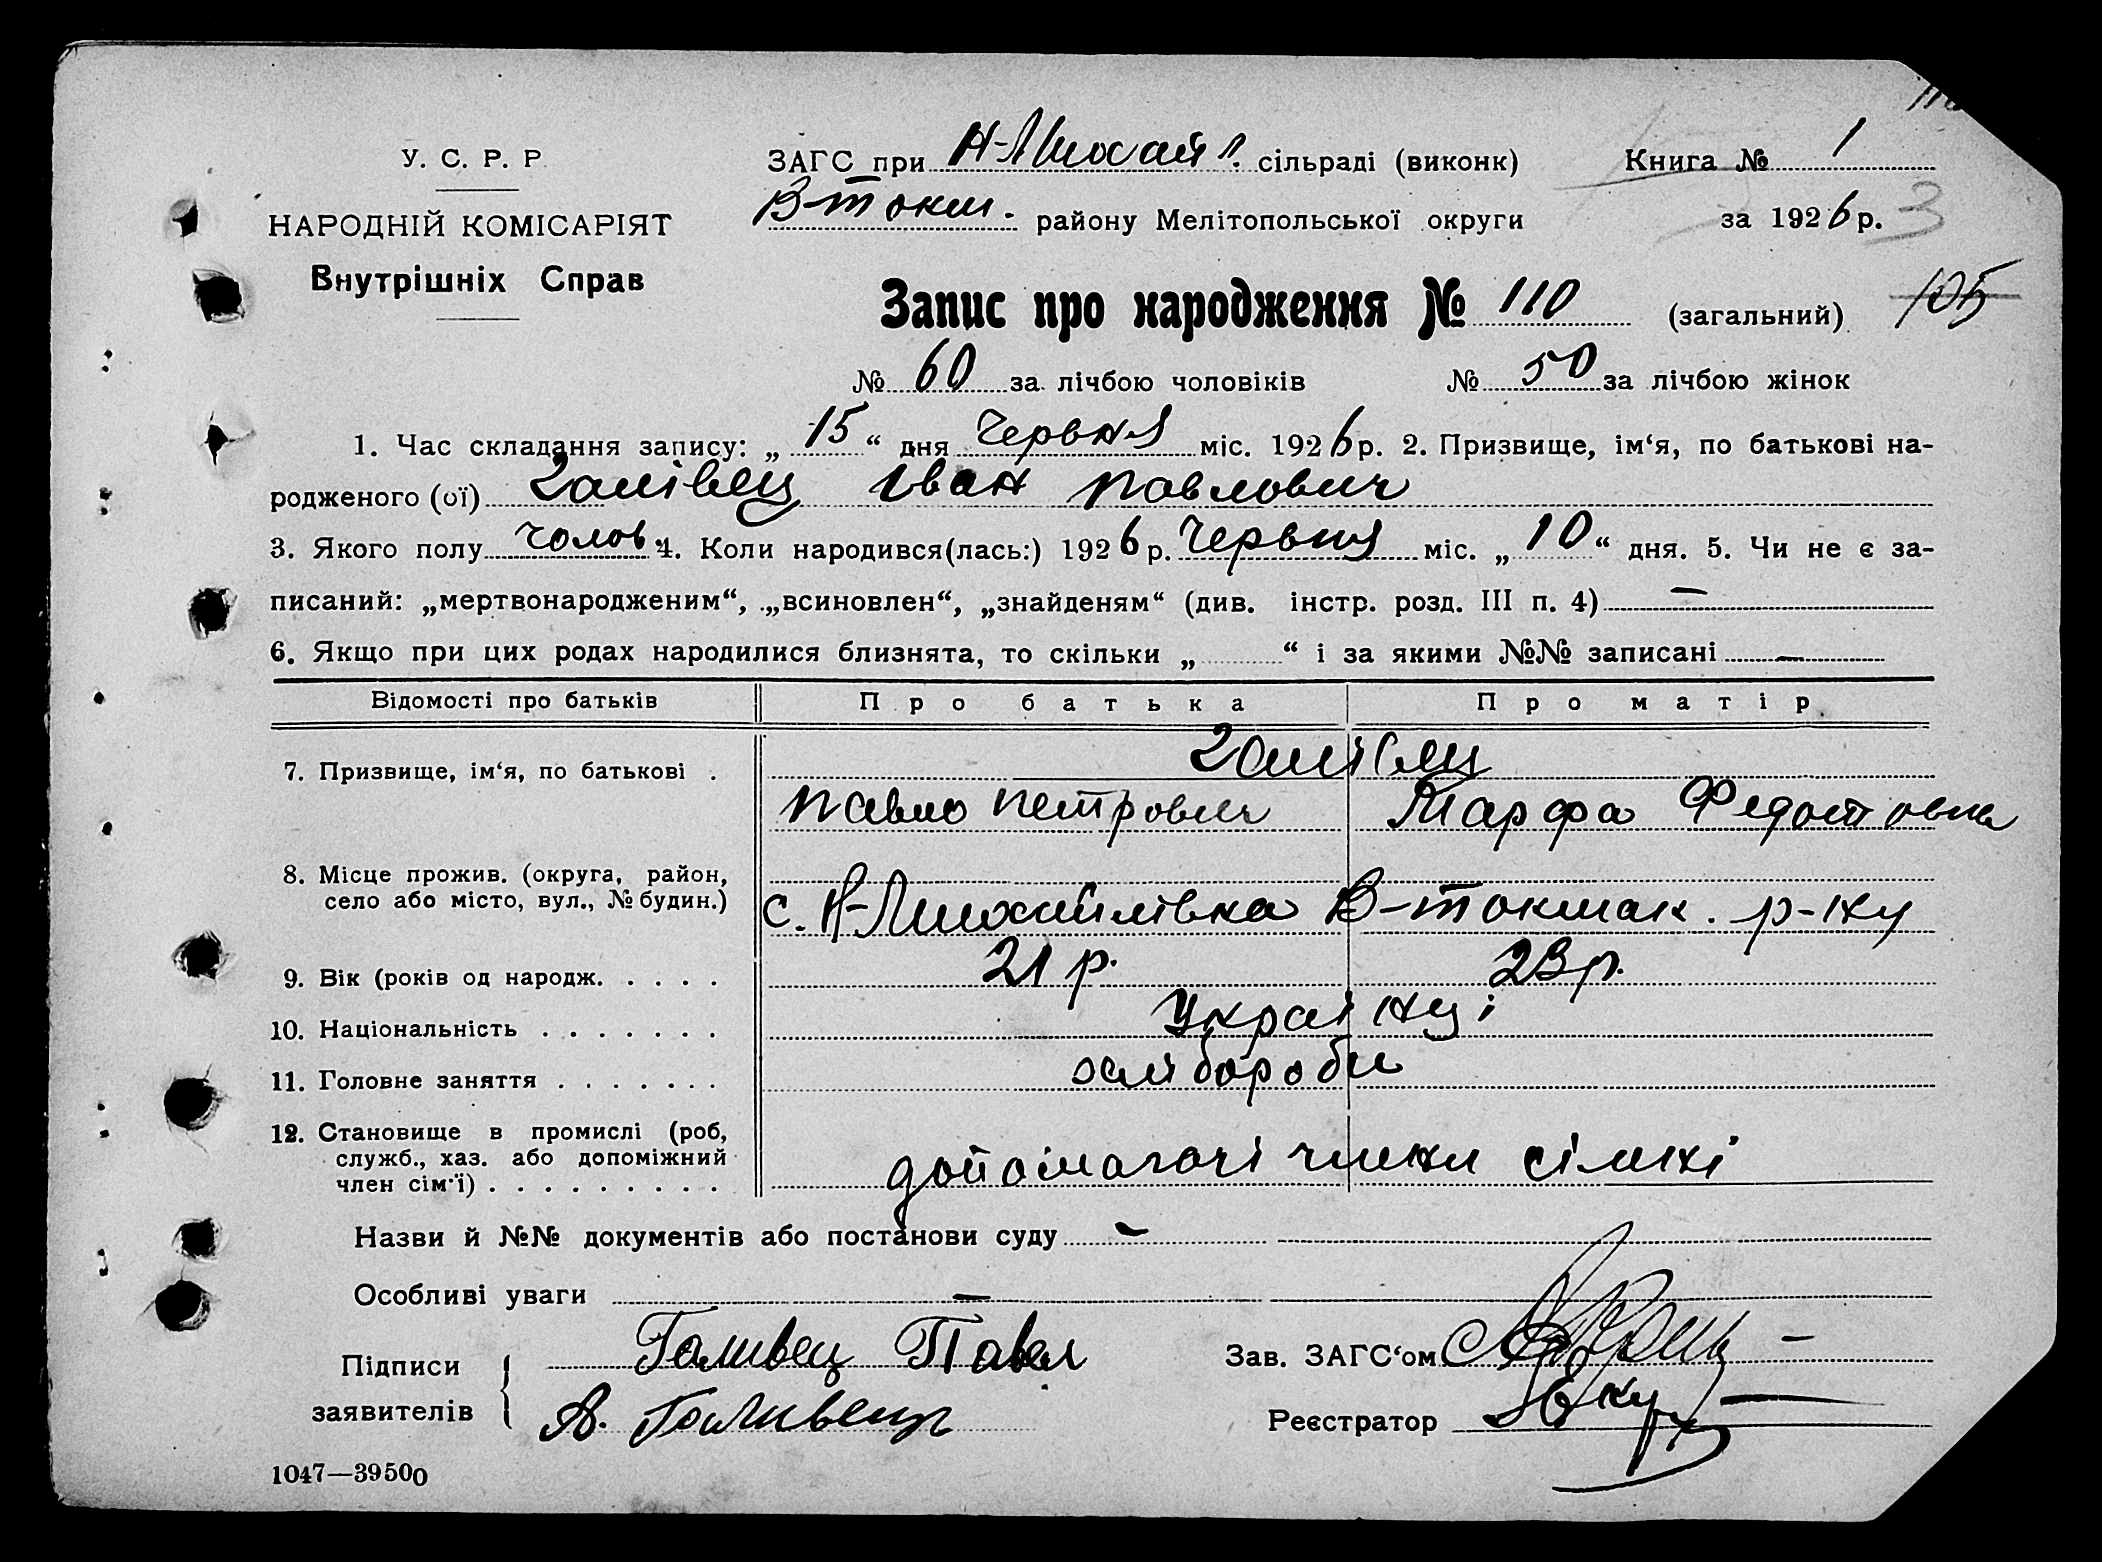 У. С. Р. Р.
НАРОДНІЙ КОМІСАРІЯТ
Внутрішніх Справ
ЗАГС при Н-Михайл. сільраді (виконк)
В-Токм. району Мелітопольської округи
Книга № 1
за 1926 р. 3
Запис про народження № 110 (загальний) 105
№ 60 за лічбою чоловіків № 50 за лічбою жінок
1. Час складання запису: „15“ дня Червня міс. 1926 р. 2. Призвище, ім‘я, по батькові на-
родженого (ої) Галівец Іван Павлович
3. Якого полу чолов. 4. Коли народився(лась:) 1926 р. Червня міс. „10“ дня. 5. Чи не є за-
писаний: „мертвонародженим“, „всиновлен“, „знайденям“ (див. інстр. розд. III п. 4) —
6. Якщо при цих родах народилися близнята, то скільки „ “ і за якими №№ записані —
Відомості про батьків Про батька Про матір
7. Призвище, ім‘я, по батькові . Галівец
Павло Петрович Марфа Федотовна
8. Місце прожив. (округа, район,
село або місто, вул., № будин.) с. Н-Михайлівка В-Токмак. р-ну
9. Вік (років од народж. . . . . 21 р. 23 р.
10. Національність . . . . . . . Українці
11. Головне заняття . . . . . . . хлібороби
12. Становище в промислі (роб,
служб., хаз. або допоміжний
член сім‘ї) . . . . . . . . . допомагачі члени сімні
Назви й №№ документів або постанови суду —
Особливі уваги —
Підписи
заявителів
Галивец Павел
А. Галивець
Зав. ЗАГС‘ом
Реєстратор
1047—39500